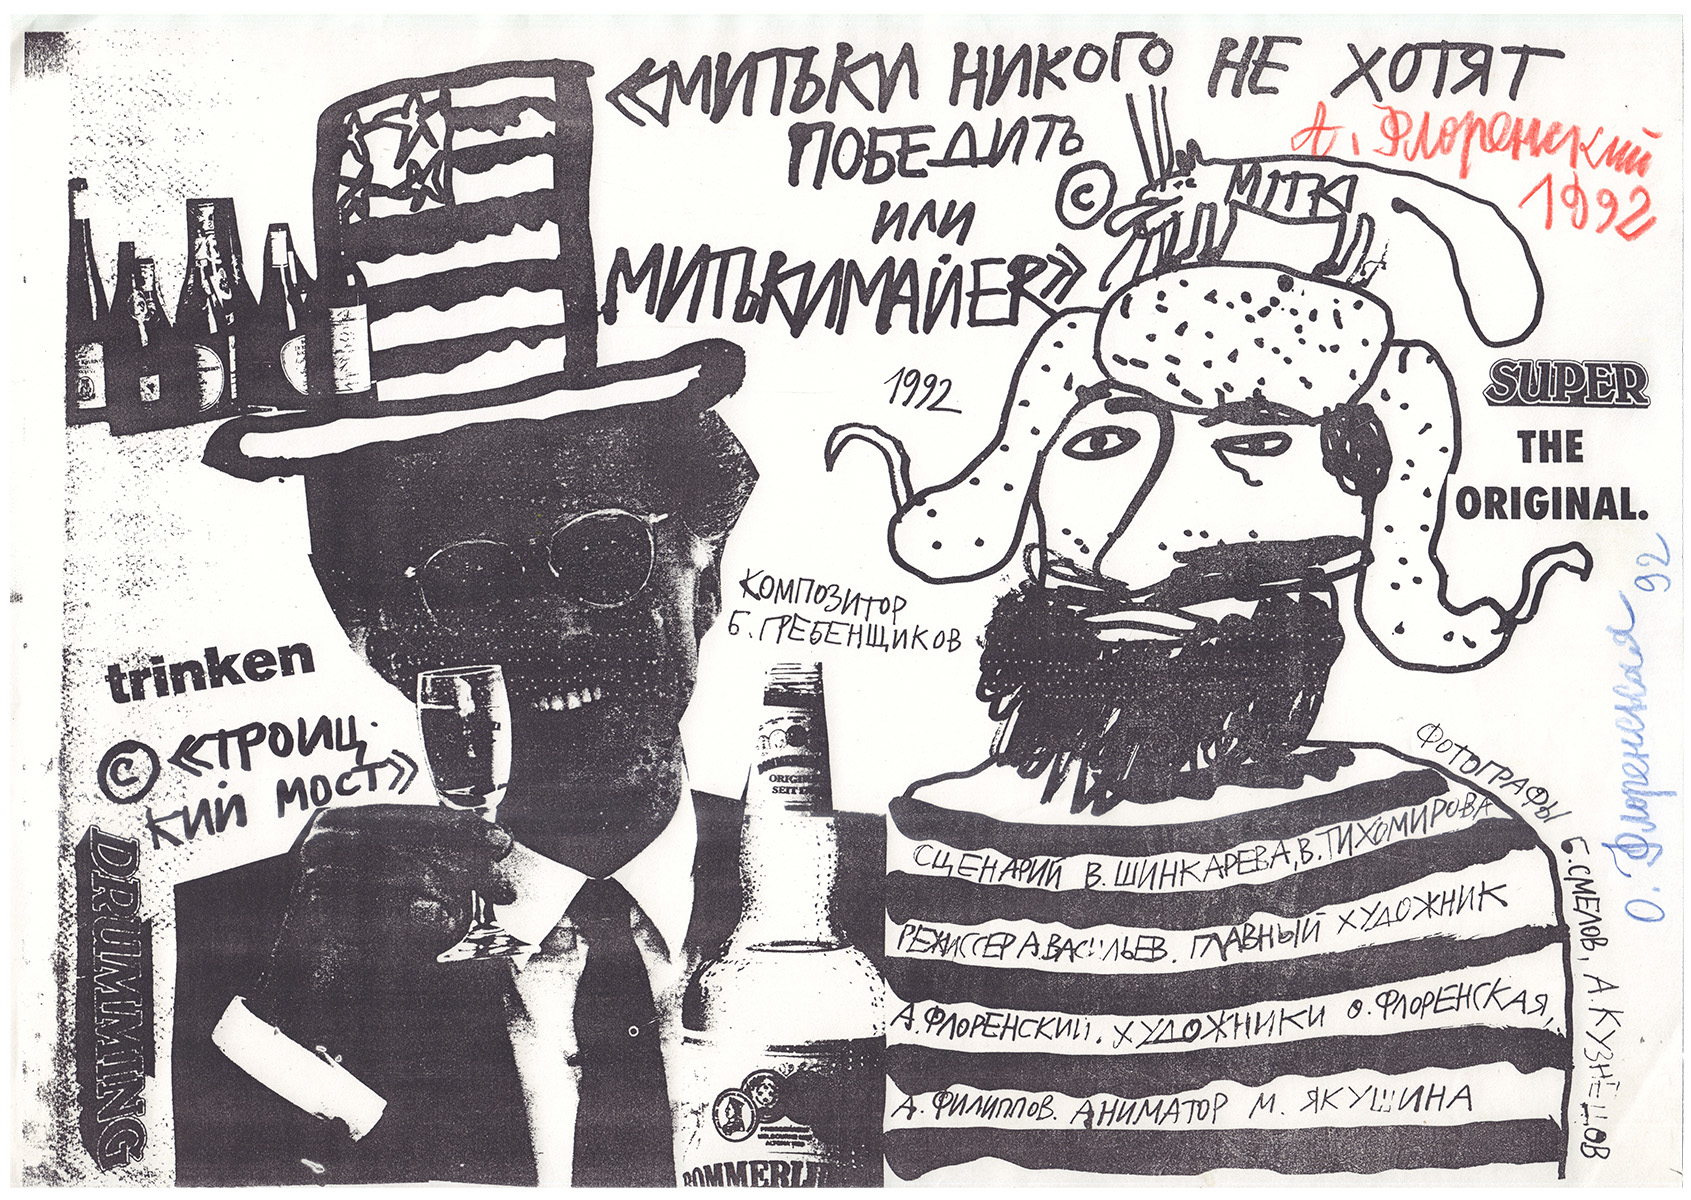 «МИТЬКИ НИКОГО НЕ ХОТЯТ
ПОБЕДИТЬ
ИЛИ
МИТЬКИМАЙЕR»
©
1992
MITKI
А. Флоренский
1992
SUPER
THE
ORIGINAL.
О. Флоренская 92
КОМПОЗИТОР
Б. ГРЕБЕНЩИКОВ
trinken
© «ТРОИЦ-
КИЙ МОСТ»
DRUMMING
ORIGINAL
SEIT
POMMERLU
ФОТОГРАФЫ Б. СМЕЛОВ, А. КУЗНЕЦОВ
СЦЕНАРИЙ В. ШИНКАРЕВА, В. ТИХОМИРОВА
РЕЖИССЕР А. ВАСИЛЬЕВ. ГЛАВНЫЙ ХУДОЖНИК
А. ФЛОРЕНСКИЙ. ХУДОЖНИКИ О. ФЛОРЕНСКАЯ,
А. ФИЛИППОВ. АНИМАТОР М. ЯКУШИНА